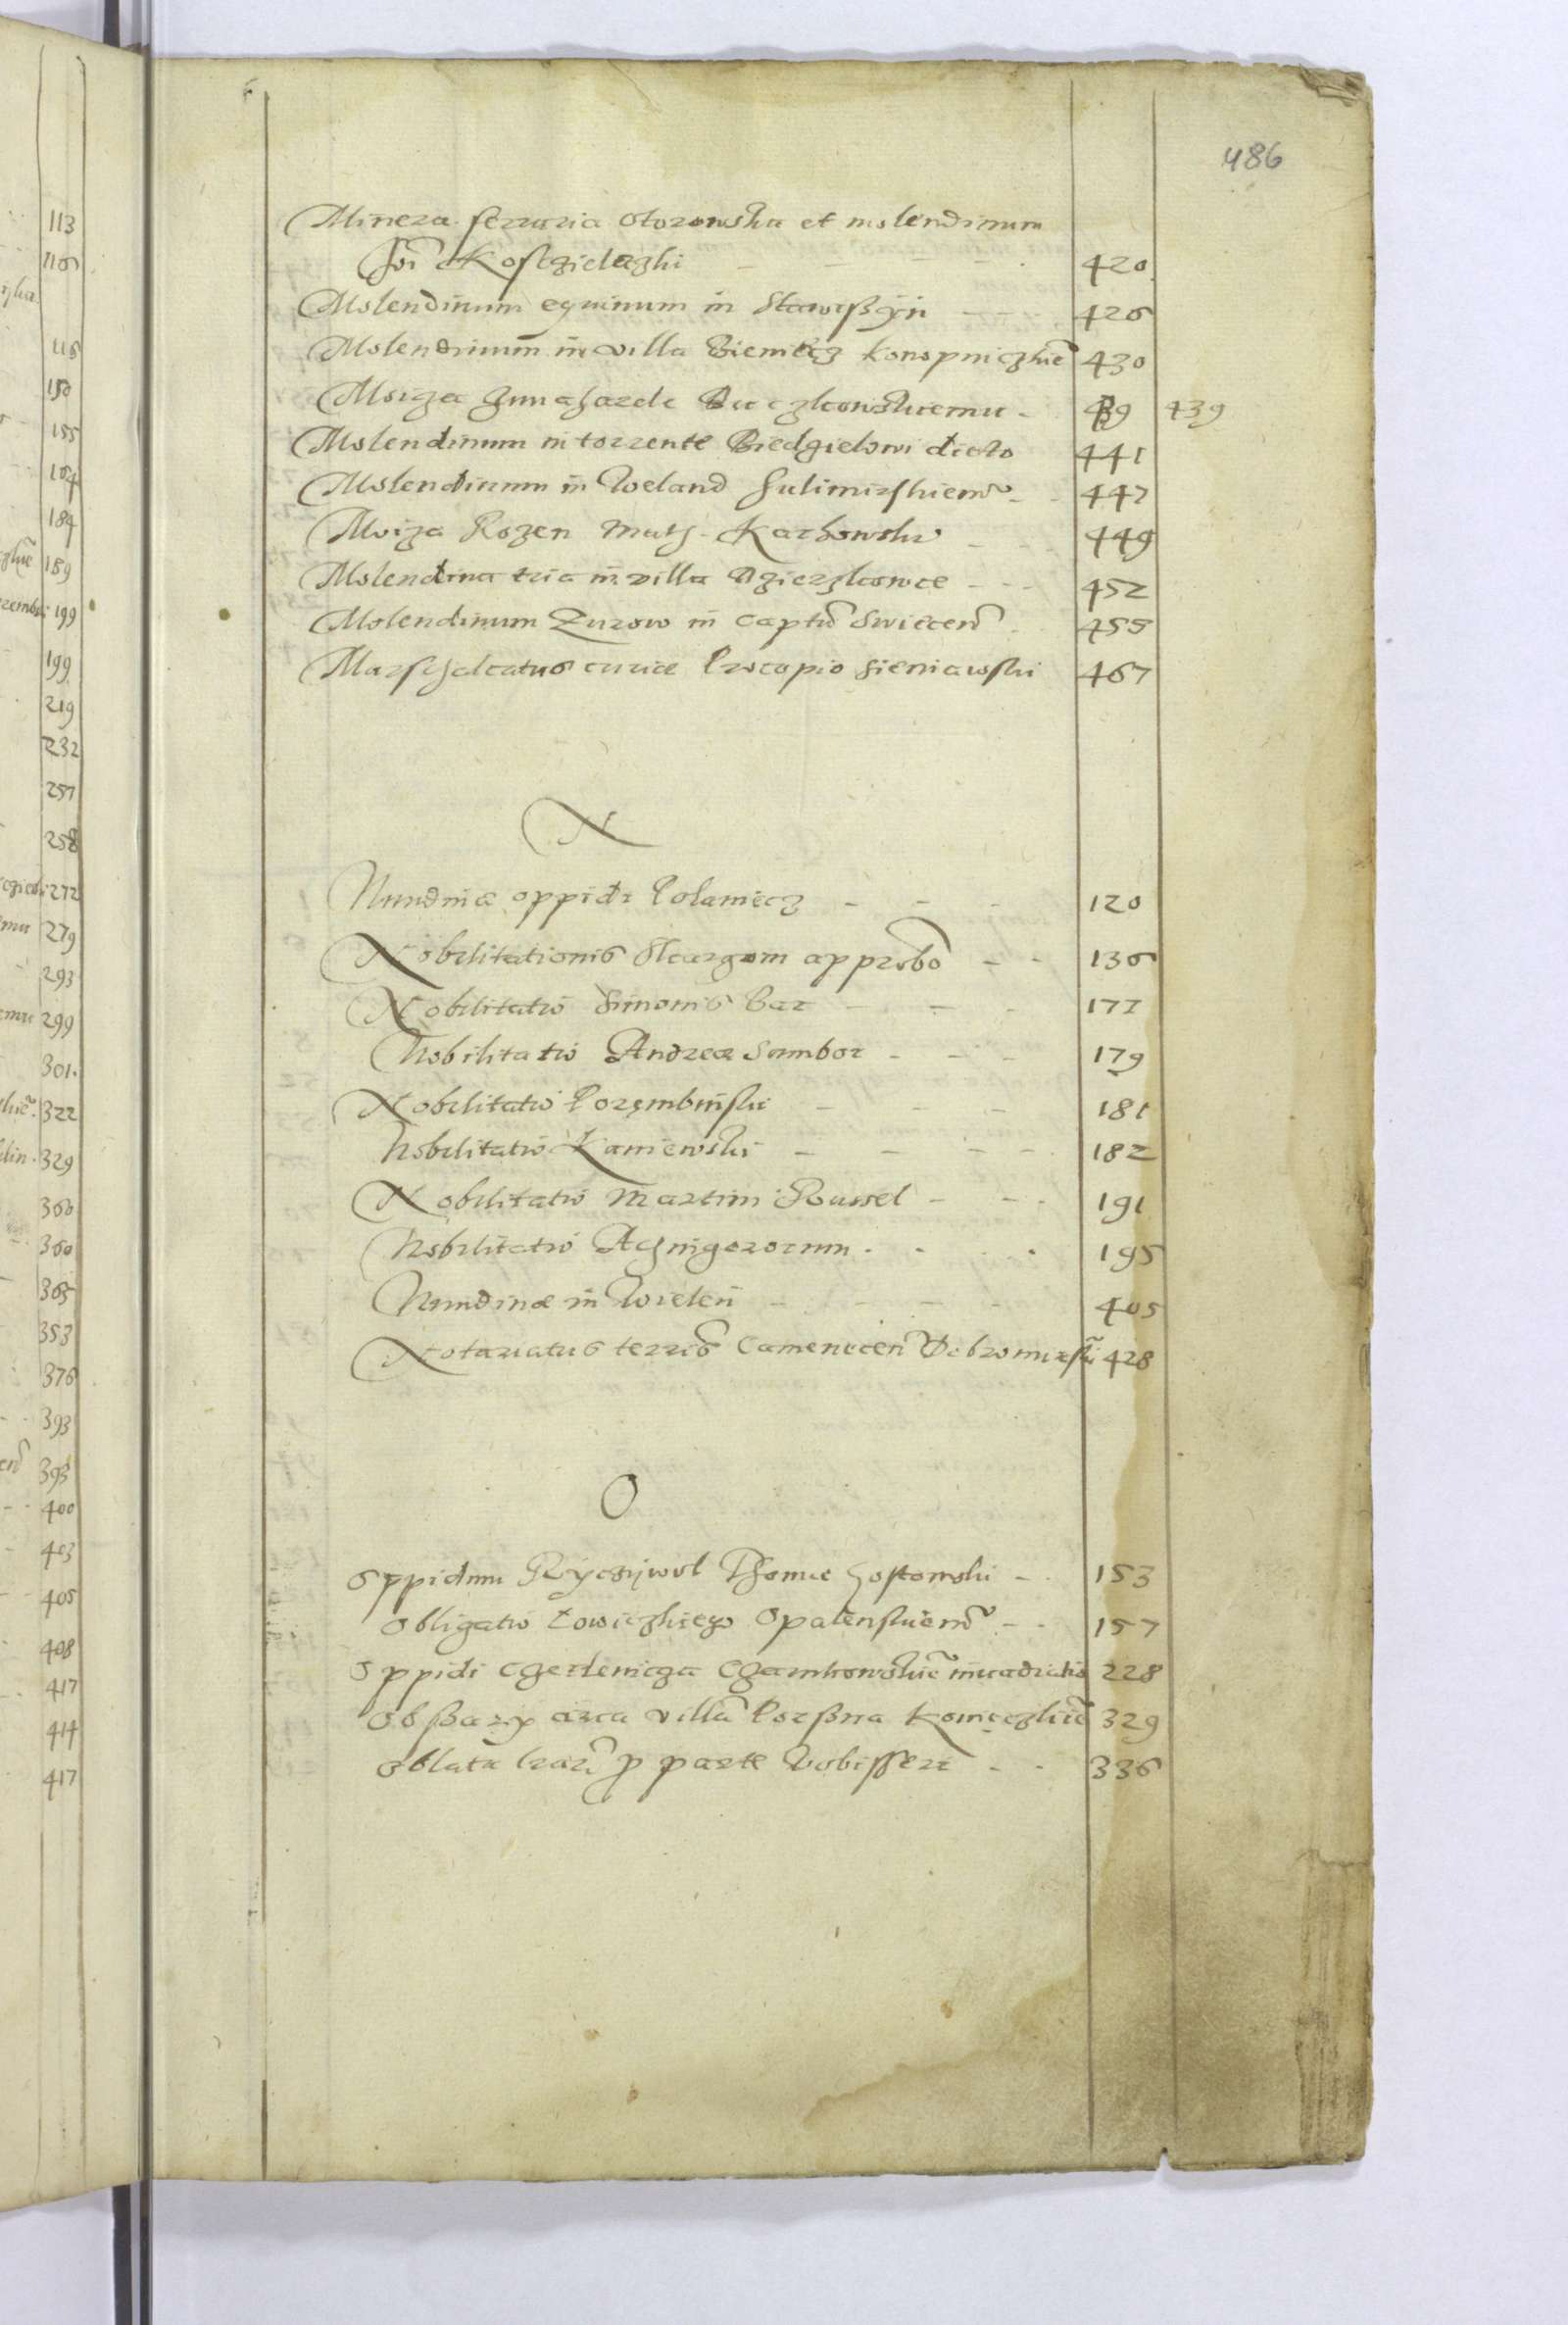 486
Minera ferraria Otorowska et molendinum
Joi Kosczielezki - - - 420
Molendinum equinum in Stawißijn - - 426
Molendinum in villa Biemicz Konopniczkie 430
Moiza Buczkowskiemu - 439 439
Molendinum in torrente Biedzielowi dicto 441
Molendinum in Woeland Sulimirskiemu - - 447
Moiza Rozen Math. Karhowski - - 449
Molendina tria in villa Dzierzkowce - - - 452
Molendinum Zurow in captu Swiecen 455
Marschalcatus curiae Procopio Sieniawski 467
N
Nundinae oppidi Polaniecz - - - 120
Nobilitationis Skargom approbo - - 136
Nobilitatio Simonis Bar - - - 177
Nobilitatio Andreae Sambor - - - 179
Nobilitatio Porembinski - - - 181
Nobilitatio Kaniewski - - - - 182
Nobilitatio Martini Russel - - - 191
Nobilitatio - - - 195
Nundinae in Wielen - - - - 405
Notariatus terris Camenecen Dobromirski 428
O
Oppidum Ryczijwol Thomae Gostomski - - 153
Obligatio Lowiczkiego Opalenskiemu - - 157
Oppidi Czerlenicza Czarnkowskie 228
Obßary circa villa Porßna Konieczkie 329
Oblata p parte Wobisseri - - 336
113
116
118
150
155
164
184
189
199
199
219
232
257
258
272
279
293
299
301.
322
329
360
360
365
353
376
393
393
400
403
405
408
417
414
417